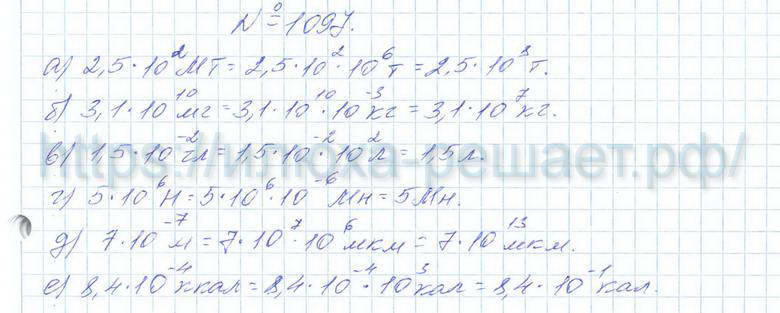 № 1097.
а) 2,5·10² Мт = 2,5·10²·10⁶ т = 2,5·10⁸ т.
б) 3,1·10¹⁰ мг = 3,1·10¹⁰·10⁻³ кг = 3,1·10⁷ кг.
в) 1,5·10⁻² гл = 1,5·10⁻²·10² л = 1,5 л.
г) 5·10⁶ Н = 5·10⁶·10⁻⁶ Мн = 5 Мн.
д) 7·10⁻⁷ м = 7·10⁷·10⁶ мкм = 7·10¹³ мкм.
е) 8,4·10⁻⁴ ккал = 8,4·10⁻⁴·10³ кал = 8,4·10⁻¹ кал.
https://илюха-решает.рф/